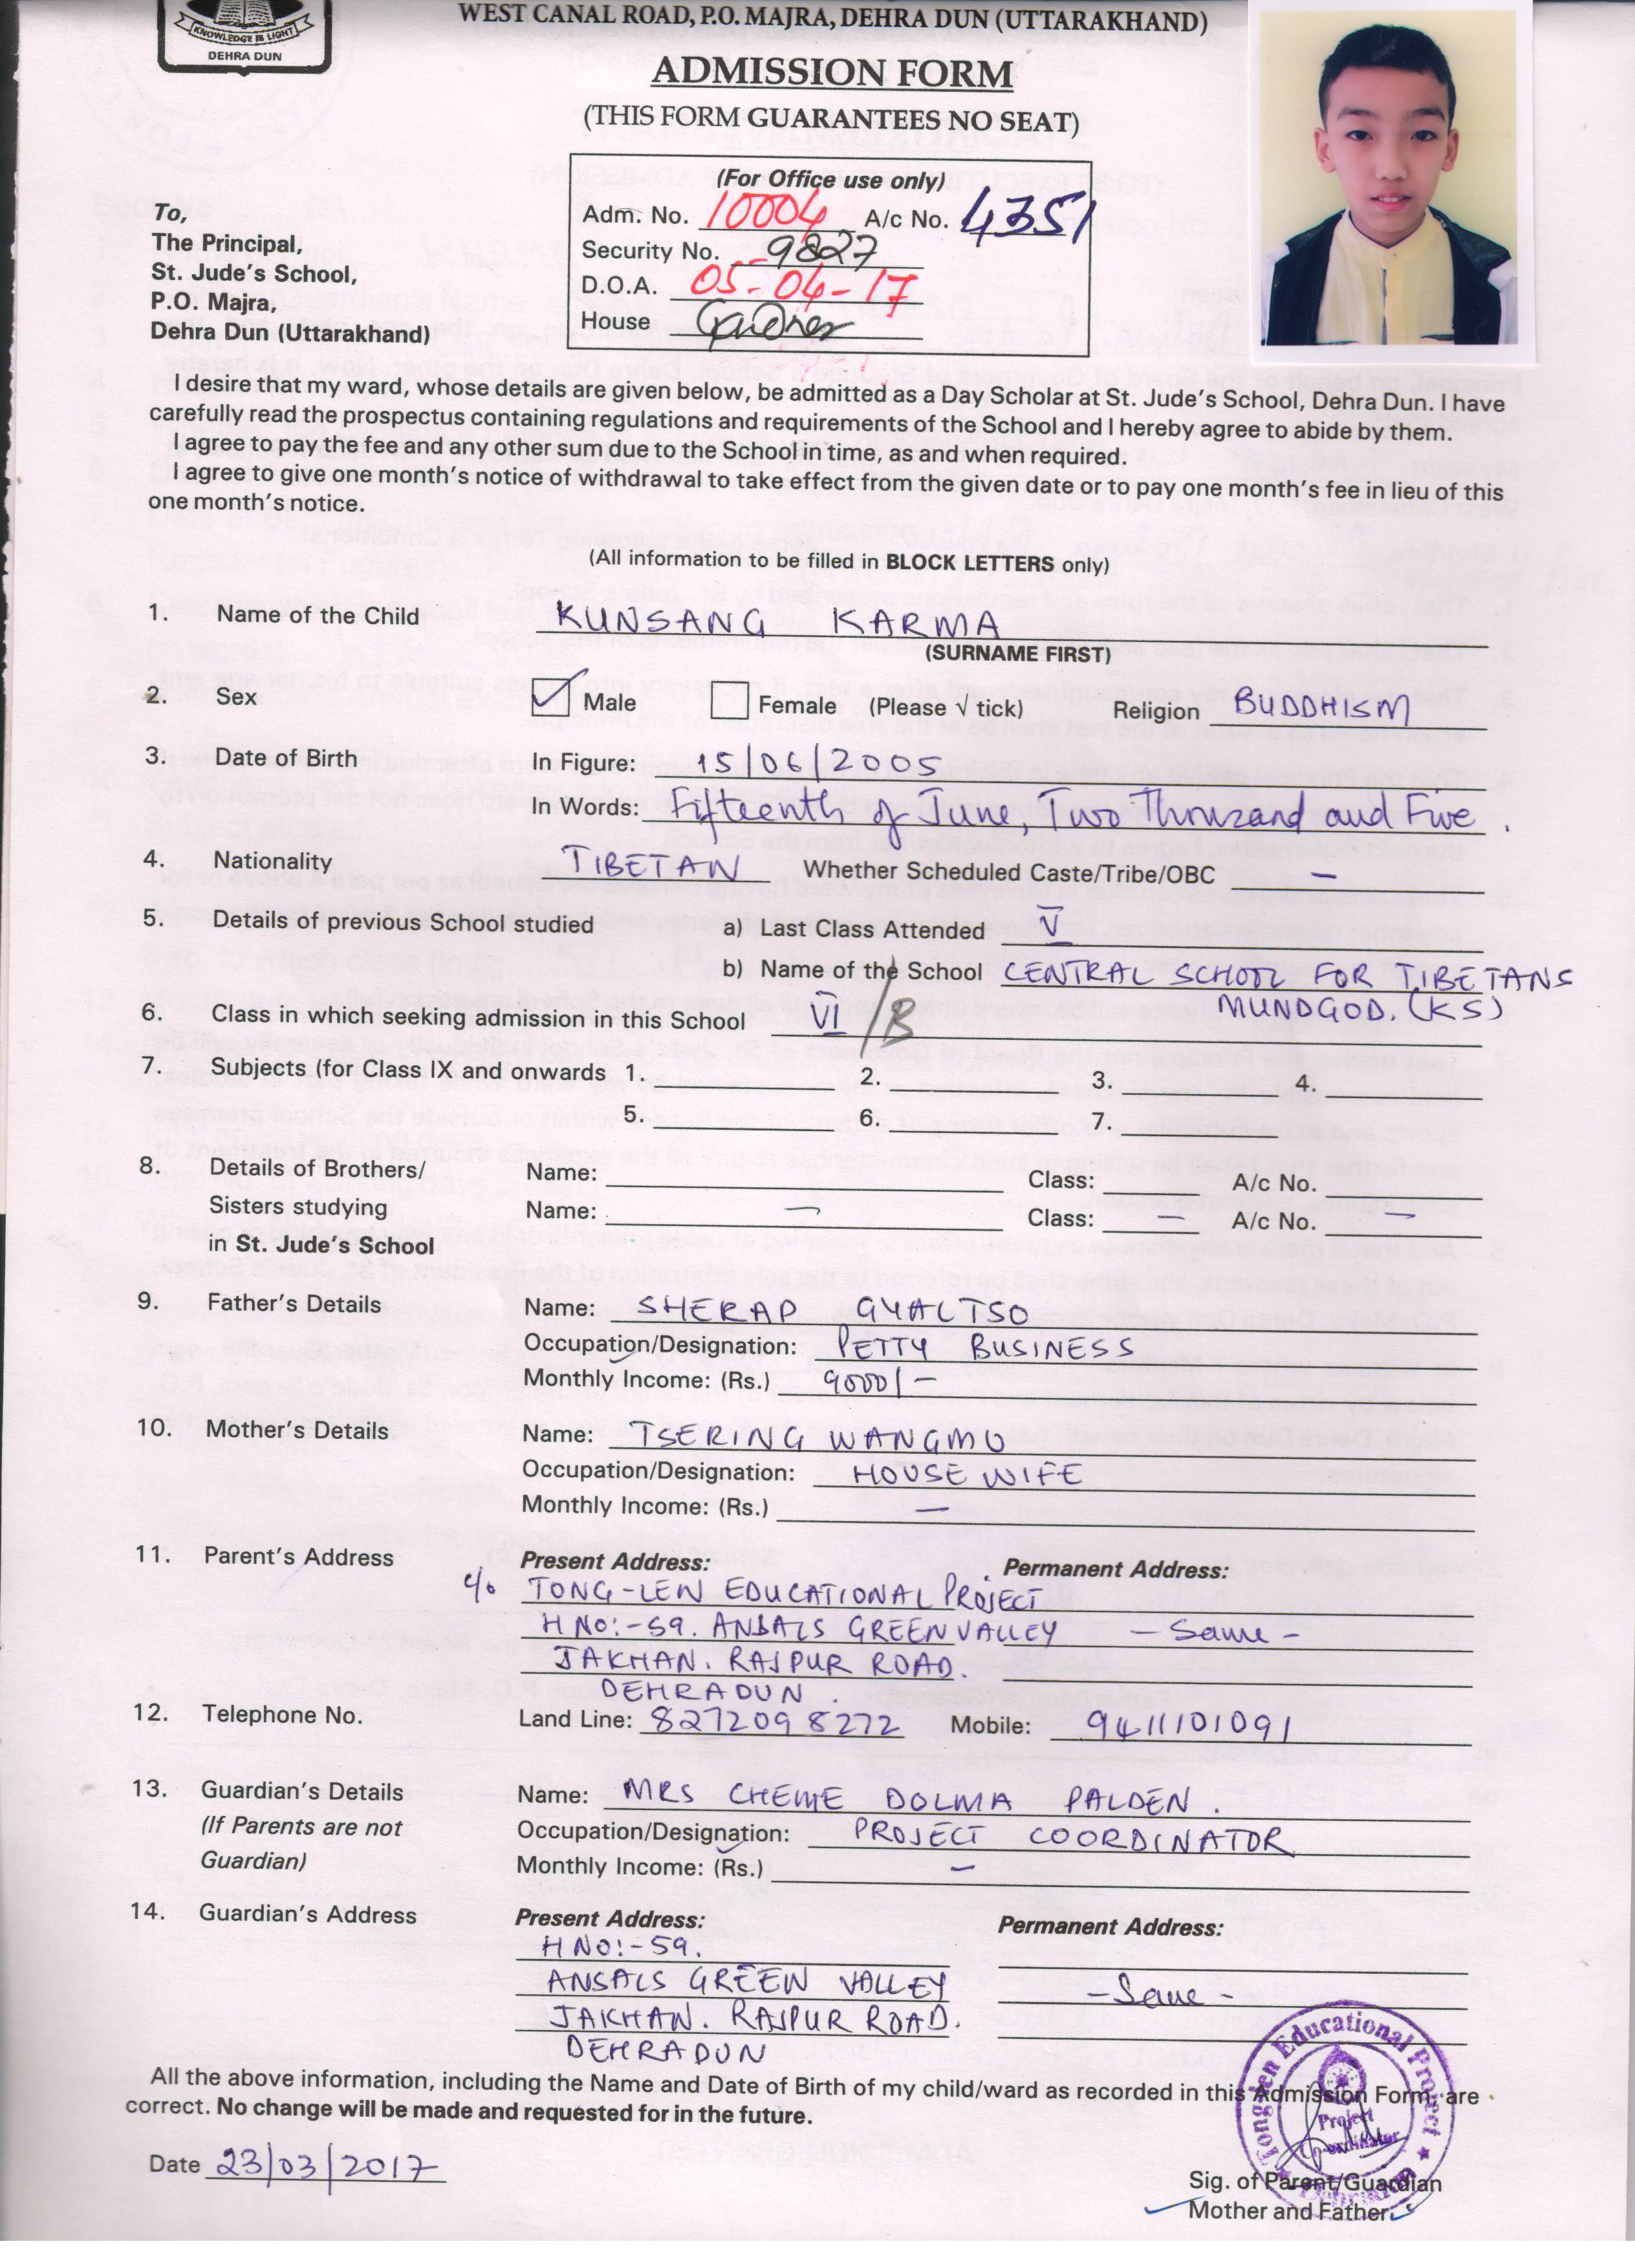 KNOWLEDGE IS LIGHT
DEHRA DUN
WEST CANAL ROAD, P.O. MAJRA, DEHRA DUN (UTTARAKHAND)
ADMISSION FORM
(THIS FORM GUARANTEES NO SEAT)
(For Office use only)
Adm. No. 10004 A/c No. 4351
Security No. 9827
D.O.A. 05-04-17
House
To,
The Principal,
St. Jude's School,
P.O. Majra,
Dehra Dun (Uttarakhand)
I desire that my ward, whose details are given below, be admitted as a Day Scholar at St. Jude's School, Dehra Dun. I have
carefully read the prospectus containing regulations and requirements of the School and I hereby agree to abide by them.
I agree to pay the fee and any other sum due to the School in time, as and when required.
I agree to give one month's notice of withdrawal to take effect from the given date or to pay one month's fee in lieu of this
one month's notice.
(All information to be filled in BLOCK LETTERS only)
1. Name of the Child KUNSANG KARMA
(SURNAME FIRST)
2. Sex Male Female (Please √ tick) Religion BUDDHISM
3. Date of Birth In Figure: 15/06/2005
In Words: Fifteenth of June, Two Thouzand and Five.
4. Nationality TIBETAN Whether Scheduled Caste/Tribe/OBC –
5. Details of previous School studied a) Last Class Attended V
b) Name of the School CENTRAL SCHOOL FOR TIBETANS
MUNDGOD. (KS)
6. Class in which seeking admission in this School VI/B
7. Subjects (for Class IX and onwards 1. 2. 3. 4.
5. 6. 7.
8. Details of Brothers/ Name: Class: A/c No.
Sisters studying Name: – Class: – A/c No. –
in St. Jude's School
9. Father's Details Name: SHERAP GYALTSO
Occupation/Designation: PETTY BUSINESS
Monthly Income: (Rs.) 9000/-
10. Mother's Details Name: TSERING WANGMO
Occupation/Designation: HOUSE WIFE
Monthly Income: (Rs.) –
11. Parent's Address Present Address: Permanent Address:
c/o TONG-LEN EDUCATIONAL PROJECT
H NO:-59. ANSALS GREEN VALLEY - Same -
JAKHAN. RAJPUR ROAD.
DEHRADUN.
12. Telephone No. Land Line: 8272098272 Mobile: 9411101091
13. Guardian's Details Name: MRS CHEME DOLMA PALDEN.
(If Parents are not Occupation/Designation: PROJECT COORDINATOR
Guardian) Monthly Income: (Rs.) –
14. Guardian's Address Present Address: Permanent Address:
H NO:-59.
ANSALS GREEN VALLEY - Same -
JAKHAN. RAJPUR ROAD.
DEHRADUN
All the above information, including the Name and Date of Birth of my child/ward as recorded in this Admission Form, are
correct. No change will be made and requested for in the future.
Tonglen Educational Project
Project
Co-ordinator
Dehradun
Date 23/03/2017
Sig. of Parent/Guardian
Mother and Father